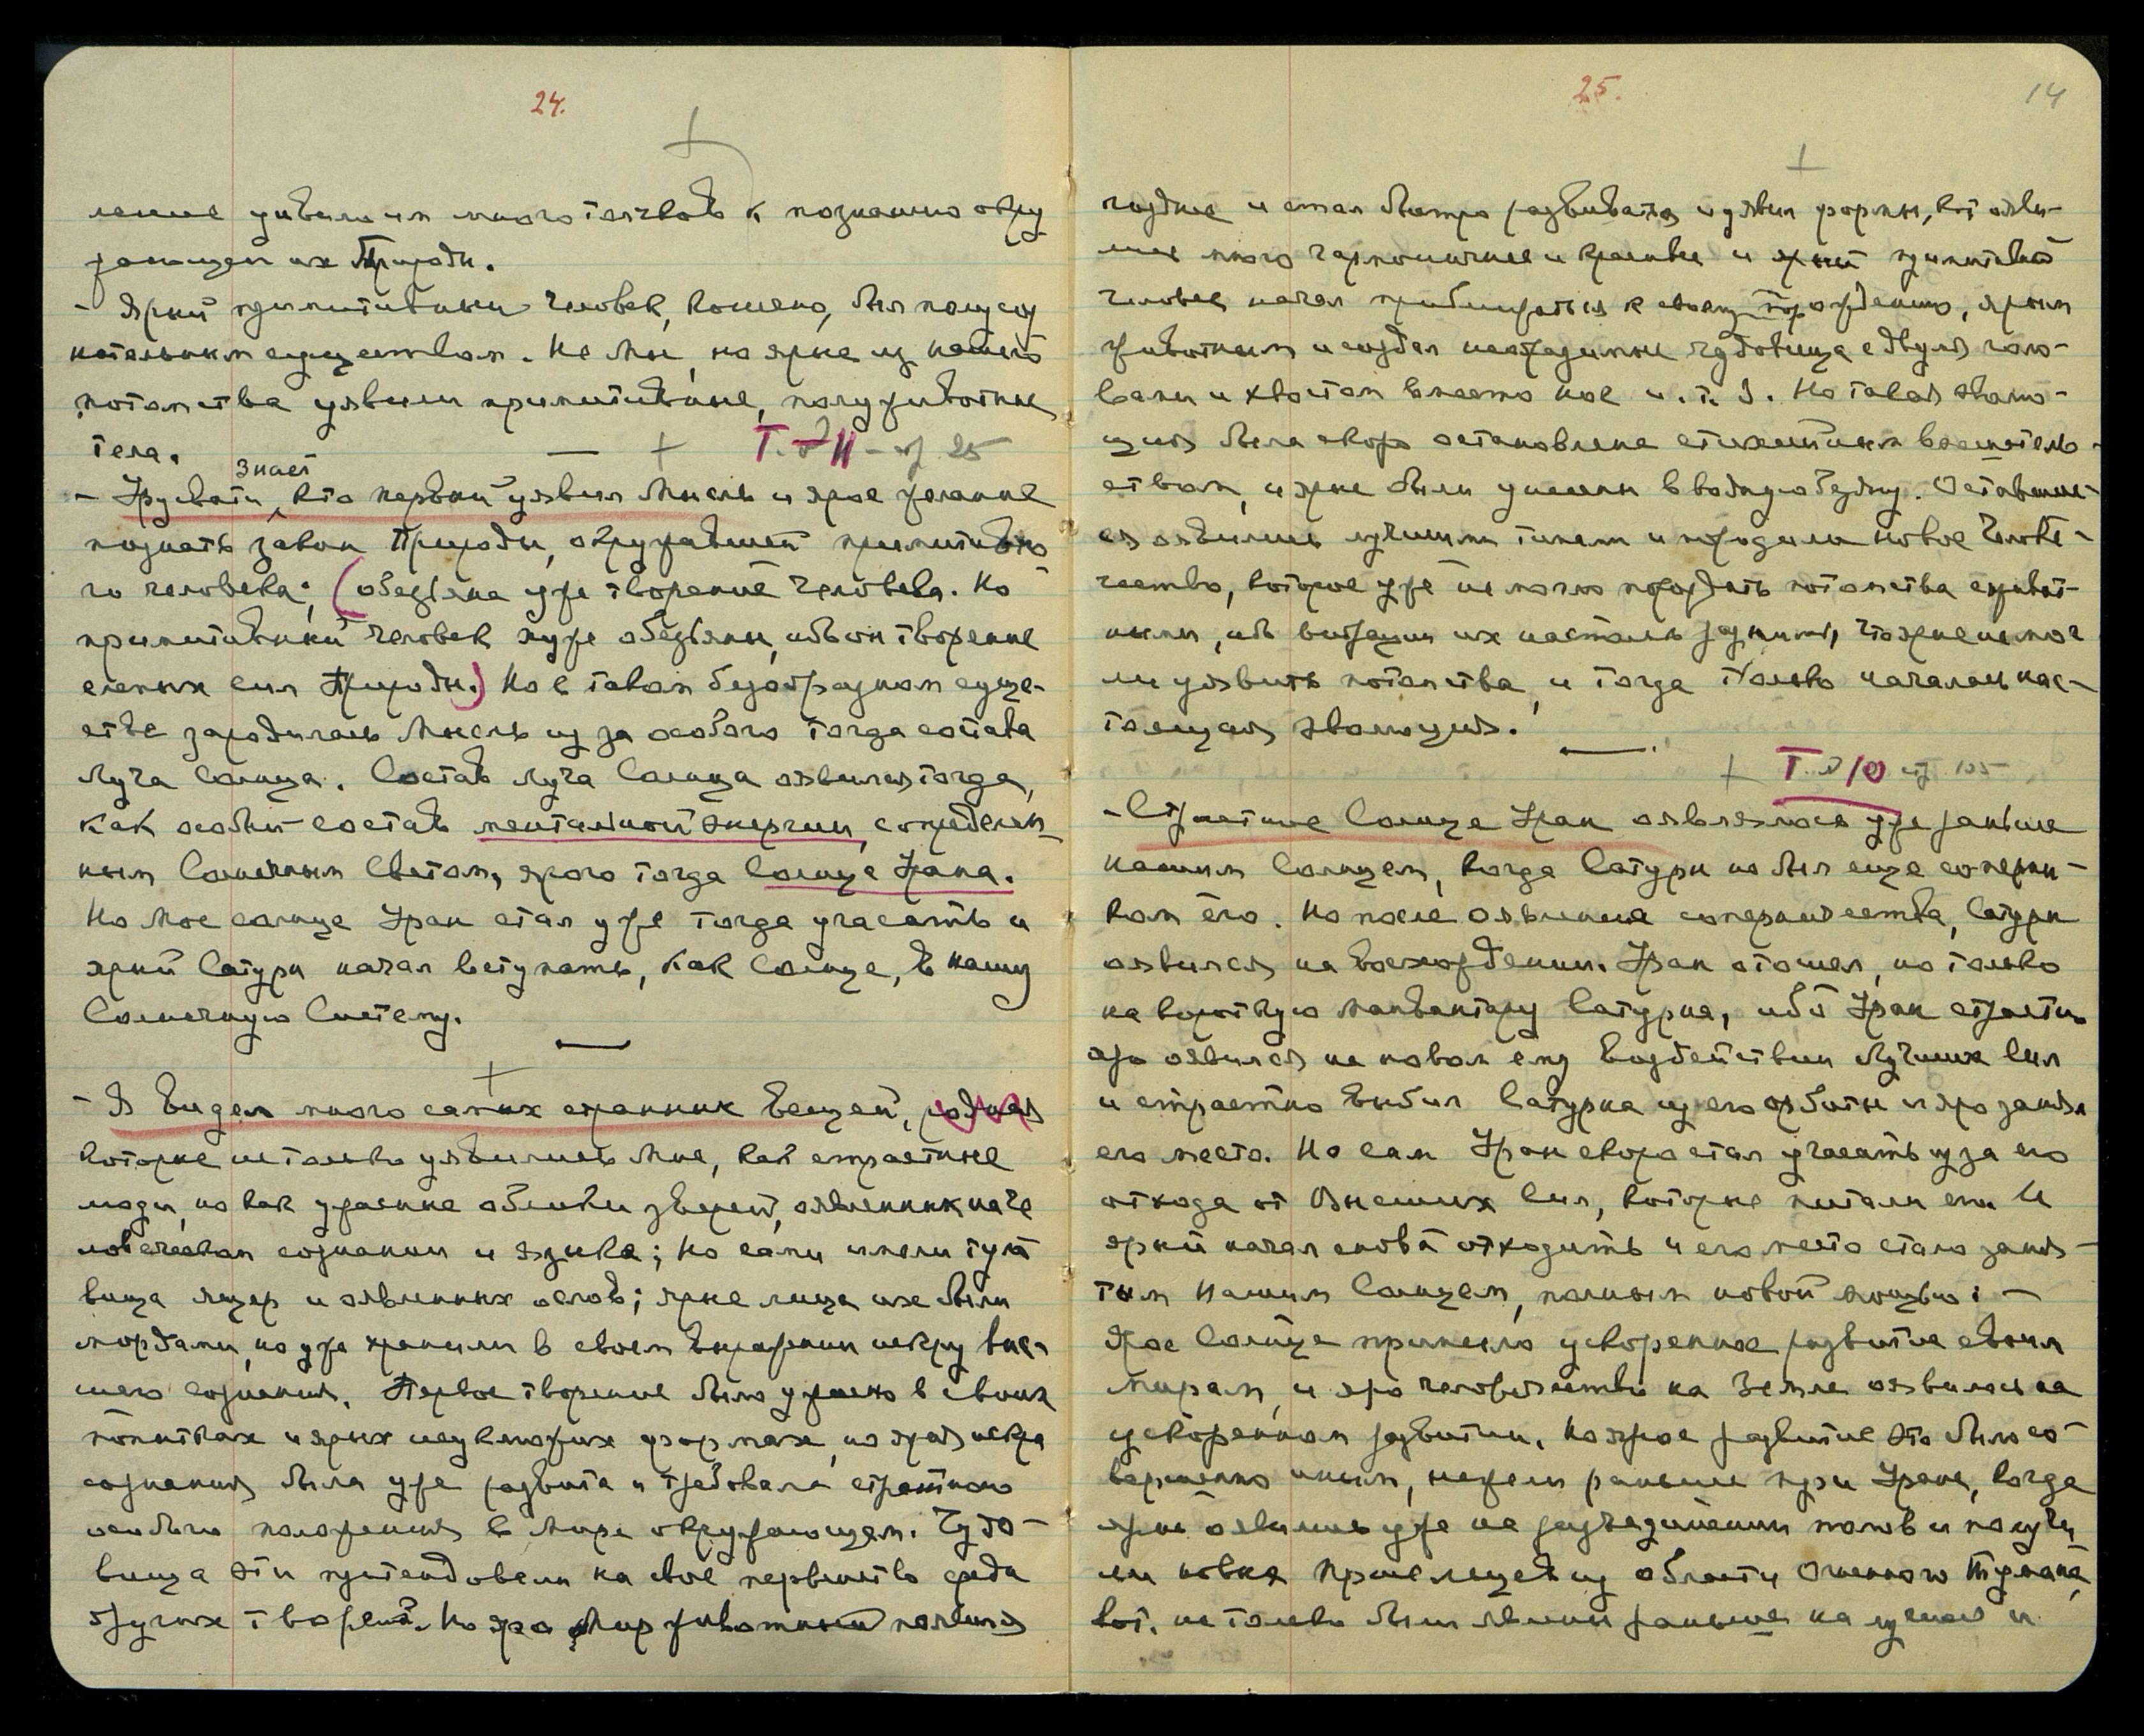 24.
ление уявили им много толчков к познанию окру
жающей их Природы.
- Ярый примитивный человек, конечно, был полусоз
нательным существом. Не мы, но ярые из нашего
потомства уявили примитивные, полуживотные
тела.
Т. 11 - 25
знает
- Урусвати, кто первый уявил мысль и ярое желание
познать закон Природы, окружавшей примитивно
го человека; (обезьяна уже творение человека. Но
примитивный человек хуже обезьяны, ибо он творение
слепых сил Природы.) Но в таком безобразном суще-
стве зародилась мысль из за особого тогда состава
Луча Солнца. Состав Луча Солнца оявился тогда,
как особый состав ментальной энергии, сопределен
ным Солнечным Светом, ярого тогда Солнца Урана.
Но Мое солнце Уран стал уже тогда угасать и
ярый Сатурн начал вступать, как Солнце, в нашу
Солнечную Систему.
- Я видел много самых странных вещей,
которые не только уявились Мне, как страстные
люди, но как ужасные облики зверей, оявленных на че
ловеческом сознании и языке; но сами имели туло
вища ящер и оявленных ослов; ярые лица их были
мордами, но уже хранили в своем выражении искру выс-
шего сознания. Первое творение было ужасно в своих
попытках и ярых неуклюжих формах, но ярая искра
сознания была уже развита и требовала страстного
особого положения в Мире окружающем. Чудо-
вища эти претендовали на свое первенство среди
других творений. Но яро Мир животный появился
25.
14
годнее и стал быстро развиваться и уявил формы, кот. ояви-
лись много гармоничнее и красивее и ярый примитивный
человек начал приближаться к своему порождению, ярым
животным и создал неотразимые чудовища с двумя голо-
вами и хвостом вместо ног и. т. д. Но такая эволю-
ция была скоро остановлена стихийным вмешатель-
ством, и ярые были унесены в водную бездну. Оставшие-
ся оявились лучшими типами и породили новое челове-
чество, которое уже не могло порождать потомства с живот-
ными, ибо вибрации их настолько разнились, что ярые не мог
ли уявить потомства, и тогда только началась нас-
тоящая эволюция.
Т. 10 стр. 105
- Страстное Солнце Уран оявлялось уже раньше
нашим Солнцем, когда Сатурн не был еще соперни-
ком его. Но после оявления соперничества, Сатурн
оявился на восхождении. Уран отошел, но только
на короткую Манвантару Сатурна, ибо Уран страстно
яро оявился на новом ему воздействии Лучших Сил
и страстно выбил Сатурна из его орбиты и яро занял
его место. Но сам Уран скоро стал угасать из за его
отхода от Высших Сил, которые питали его. И
ярый начал снова отходить и его место стало заня-
тым Нашим Солнцем, полным новой мощью: -
Ярое Солнце принесло ускоренное развитие своим
Мирам, и яро человечество на Земле оявилось на
ускоренном развитии. Но ярое развитие это было со
вершенно иным, нежели раньше при Уране, когда
ярые оявились уже на разъединении полов и получи
ли новых Пришельцев из области Огненного Тумана,
кот. не только были явлены раньше на